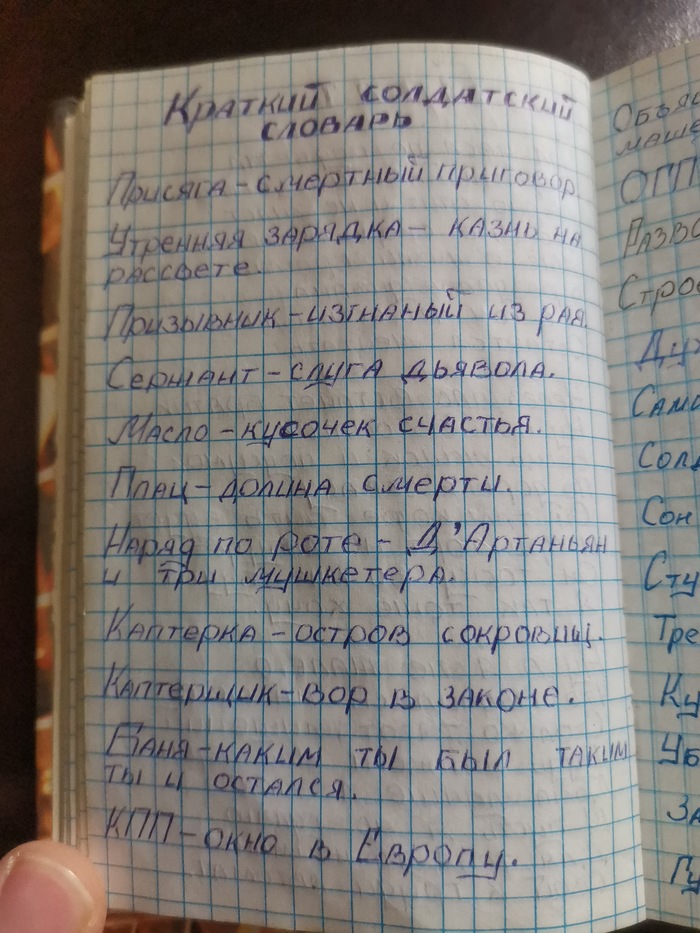 Краткий солдатский
словарь
Присяга – смертный приговор.
Утренняя зарядка – казнь на
рассвете.
Призывник – изгнаный из рая.
Сержант – слуга дьявола.
Масло – кусочек счастья.
Плац – долина смерти.
Наряд по роте – Д'Артаньян
и три мушкетера.
Каптерка – остров сокровищ.
Каптерщик – вор в законе.
Баня – каким ты был таким
ты и остался.
КПП – окно в Европу.
Сон